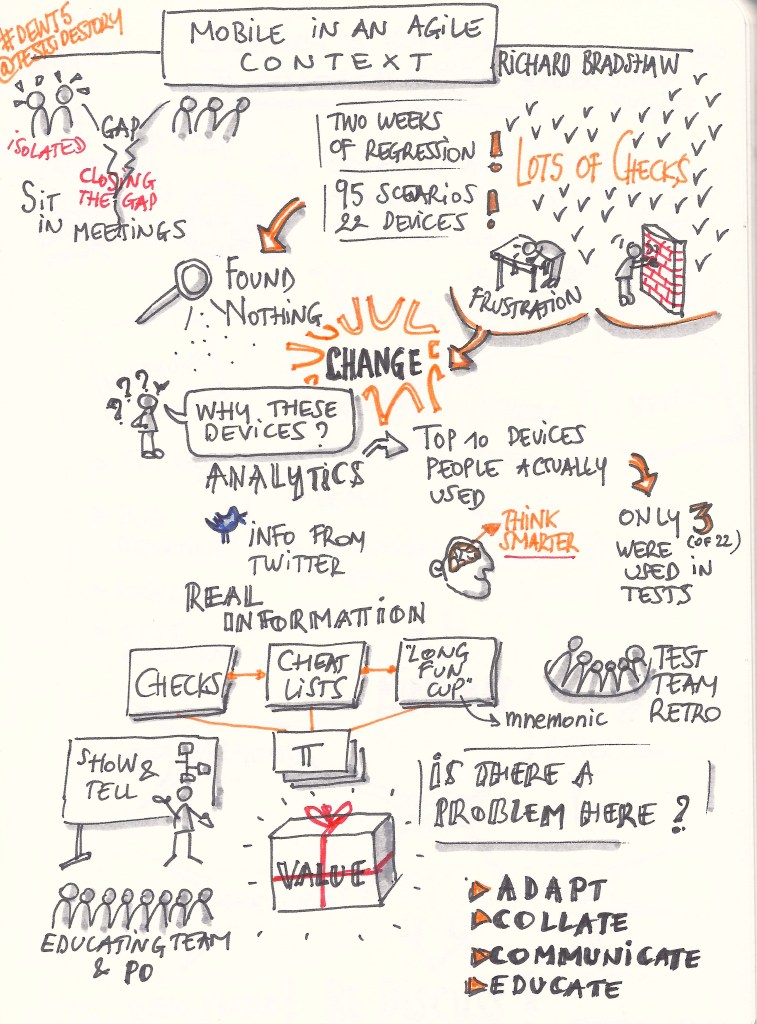 #DEWT5
@TESTSIDESTORY
MOBILE IN AN AGILE
CONTEXT
RICHARD BRADSHAW
ISOLATED
GAP
CLOSING
THE GAP
SIT
IN MEETINGS
TWO WEEKS
OF REGRESSION !
95 SCENARIOS
22 DEVICES !
LOTS OF CHECKS
FRUSTRATION
FOUND
NOTHING
CHANGE
???
WHY THESE
DEVICES?
ANALYTICS
TOP 10 DEVICES
PEOPLE ACTUALLY
USED
ONLY 3
(OF 22)
WERE
USED IN
TESTS
THINK
SMARTER
INFO FROM
TWITTER
REAL
INFORMATION
CHECKS
CHEAT
LISTS
"LONG
FUN
CUP"
mnemonic
TEST
TEAM
RETRO
π
SHOW &
TELL
IS THERE A
PROBLEM HERE?
VALUE
EDUCATING TEAM
& PO
ADAPT
COLLATE
COMMUNICATE
EDUCATE